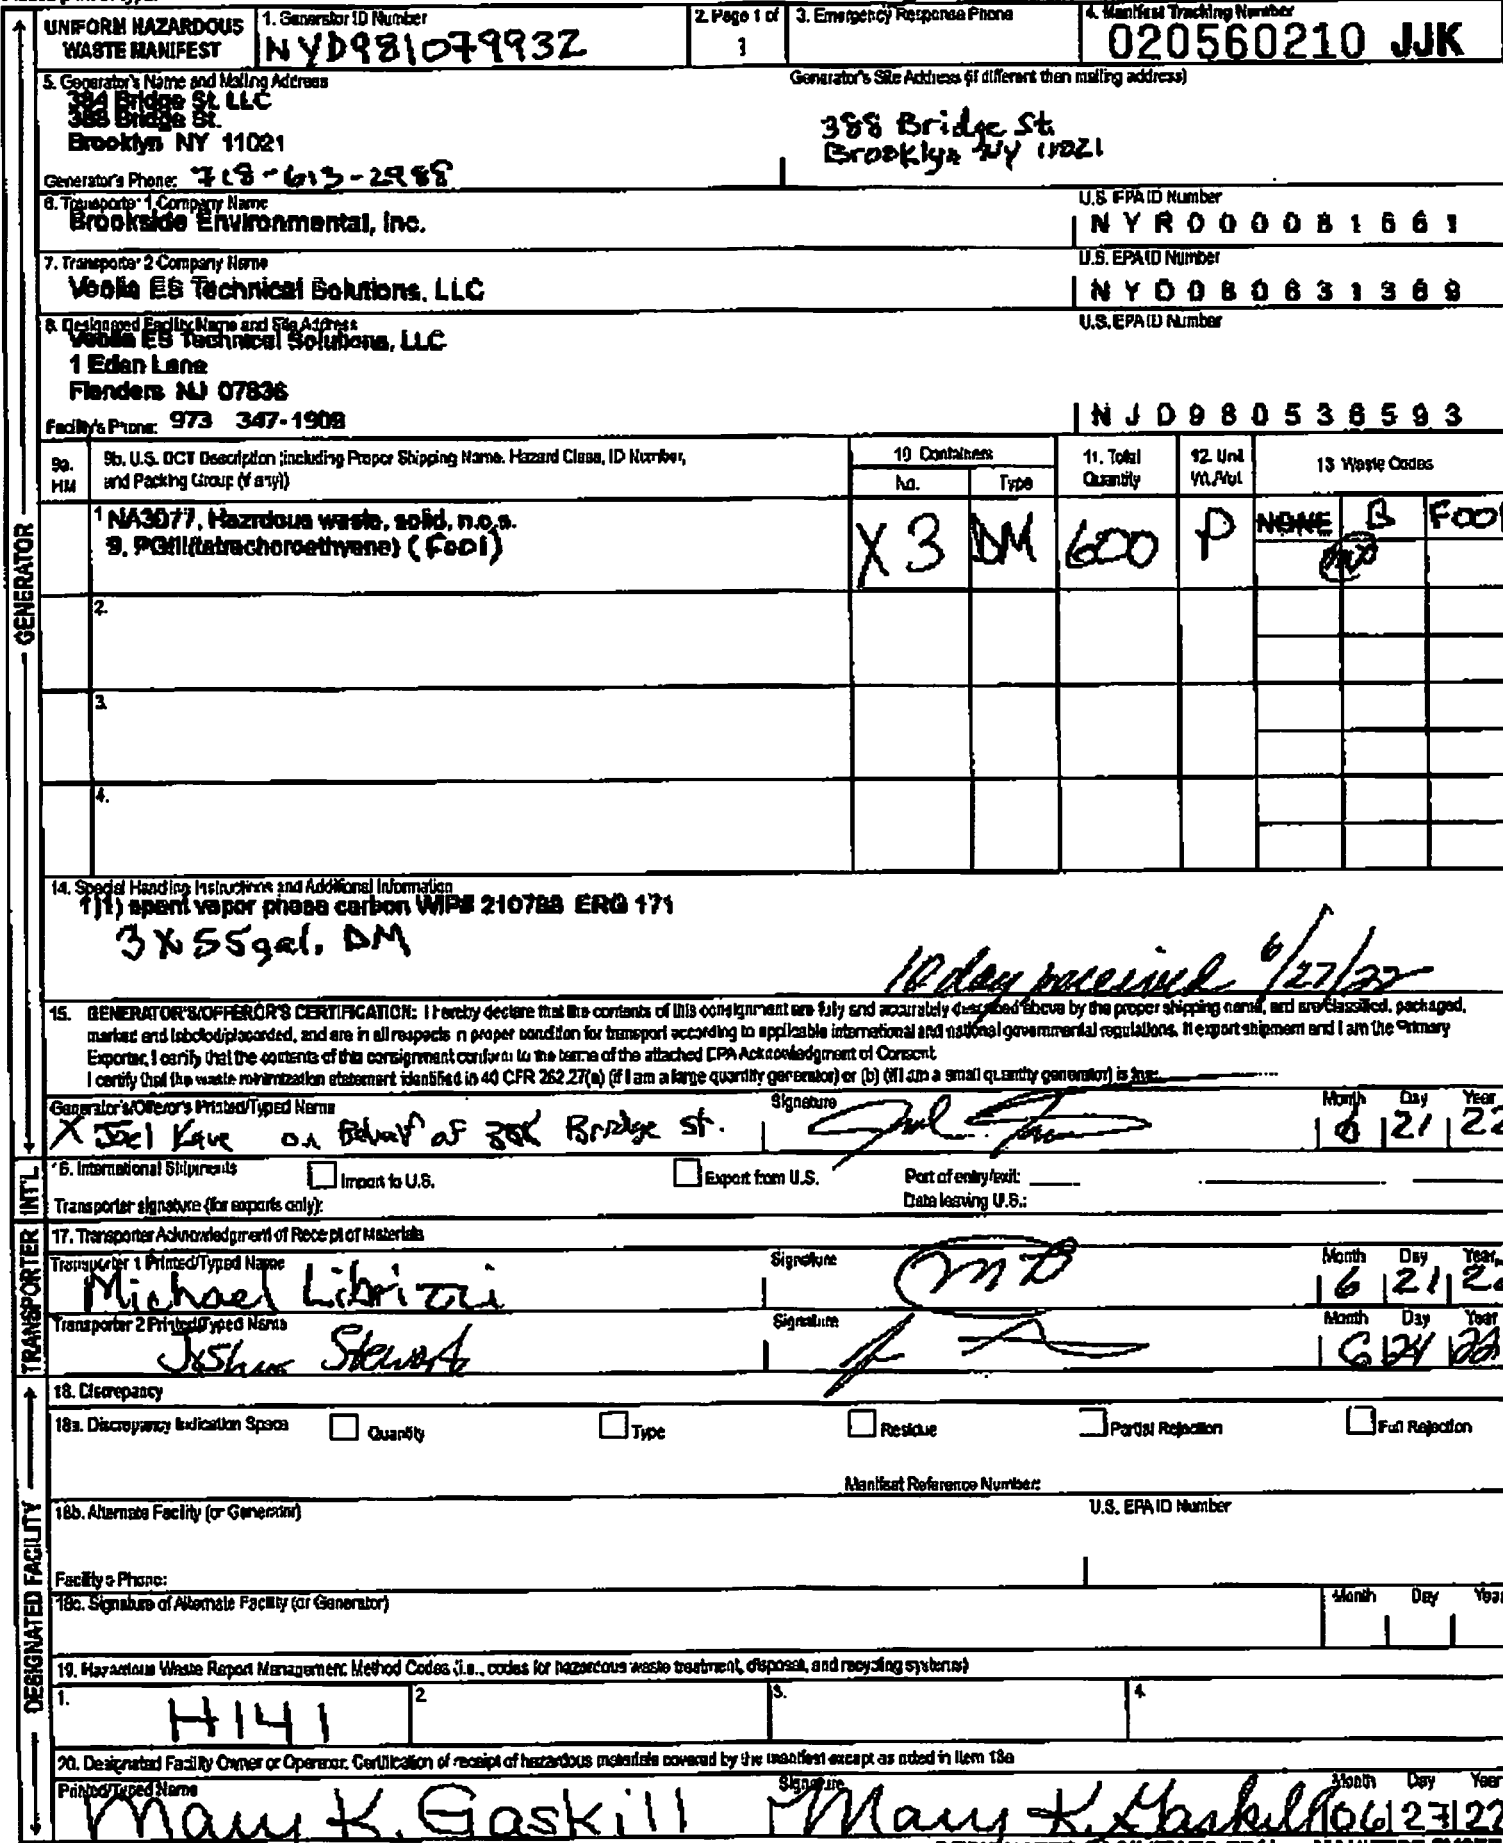 UNIFORM HAZARDOUS
WASTE MANIFEST
1. Generator ID Number
NYD981079932
2. Page 1 of
1
3. Emergency Response Phone
4. Manifest Tracking Number
020560210 JJK
5. Generator's Name and Mailing Address
384 Bridge St. LLC
388 Bridge St.
Brooklyn NY 11021
Generator's Site Address (if different than mailing address)
388 Bridge St.
Brooklyn NY 11021
Generator's Phone: 718-613-2988
6. Transporter 1 Company Name
Brookside Environmental, Inc.
U.S. EPA ID Number
NYR000081661
7. Transporter 2 Company Name
Veolia ES Technical Solutions, LLC
U.S. EPA ID Number
NYD080631369
8. Designated Facility Name and Site Address
Veolia ES Technical Solutions, LLC
1 Eden Lane
Flanders NJ 07836
U.S. EPA ID Number
Facility's Phone: 973 347-1909
NJD980536593
9a.
HM
9b. U.S. DOT Description (including Proper Shipping Name, Hazard Class, ID Number,
and Packing Group (if any))
10. Containers
No.
Type
11. Total
Quantity
12. Unit
Wt./Vol.
13. Waste Codes
1 NA3077, Hazrdous waste, solid, n.o.s.
9, PGIII(tetrachoroethyene) (F001)
X 3
DM
600
P
NONE
B
F001
2.
3.
4.
14. Special Handling Instructions and Additional Information
1)1) spent vapor phase carbon WIP# 210788 ERG 171
3 X 55gal. DM
10 day received 6/27/22
15. GENERATOR'S/OFFEROR'S CERTIFICATION: I hereby declare that the contents of this consignment are fully and accurately described above by the proper shipping name, and are classified, packaged,
marked and labeled/placarded, and are in all respects in proper condition for transport according to applicable international and national governmental regulations. If export shipment and I am the Primary
Exporter, I certify that the contents of this consignment conform to the terms of the attached EPA Acknowledgment of Consent.
I certify that the waste minimization statement identified in 40 CFR 262.27(a) (if I am a large quantity generator) or (b) (if I am a small quantity generator) is true.
Generator's/Offeror's Printed/Typed Name
Signature
Month Day Year
X Joel Kave on Behalf of 388 Bridge St.
6 21 22
16. International Shipments
Import to U.S.
Export from U.S.
Port of entry/exit:
Transporter signature (for exports only):
Date leaving U.S.:
17. Transporter Acknowledgment of Receipt of Materials
Transporter 1 Printed/Typed Name
Signature
Month Day Year
Michael Librizzi
6 21 22
Transporter 2 Printed/Typed Name
Signature
Month Day Year
Joshua Stewart
6 24 22
18. Discrepancy
18a. Discrepancy Indication Space
Quantity
Type
Residue
Partial Rejection
Full Rejection
Manifest Reference Number:
18b. Alternate Facility (or Generator)
U.S. EPA ID Number
Facility's Phone:
18c. Signature of Alternate Facility (or Generator)
Month Day Year
19. Hazardous Waste Report Management Method Codes (i.e., codes for hazardous waste treatment, disposal, and recycling systems)
1.
H141
2.
3.
4.
20. Designated Facility Owner or Operator: Certification of receipt of hazardous materials covered by the manifest except as noted in Item 18a
Printed/Typed Name
Signature
Month Day Year
Mary K. Gaskill
Mary K. Gaskill
06 27 22
GENERATOR
INT'L
TRANSPORTER
DESIGNATED FACILITY